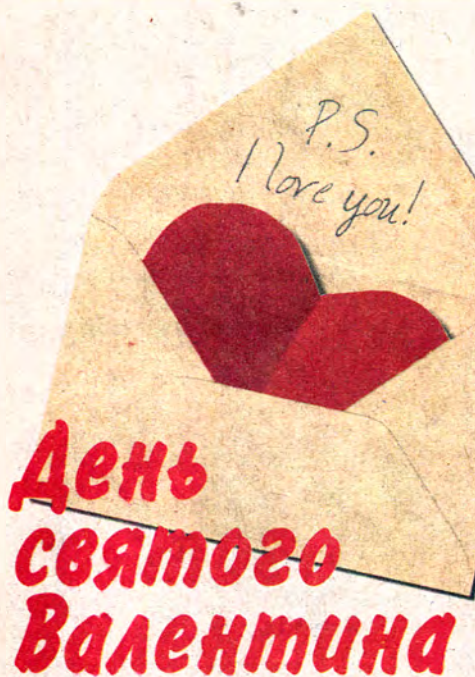 P.S.
I love you!
День
святого
Валентина